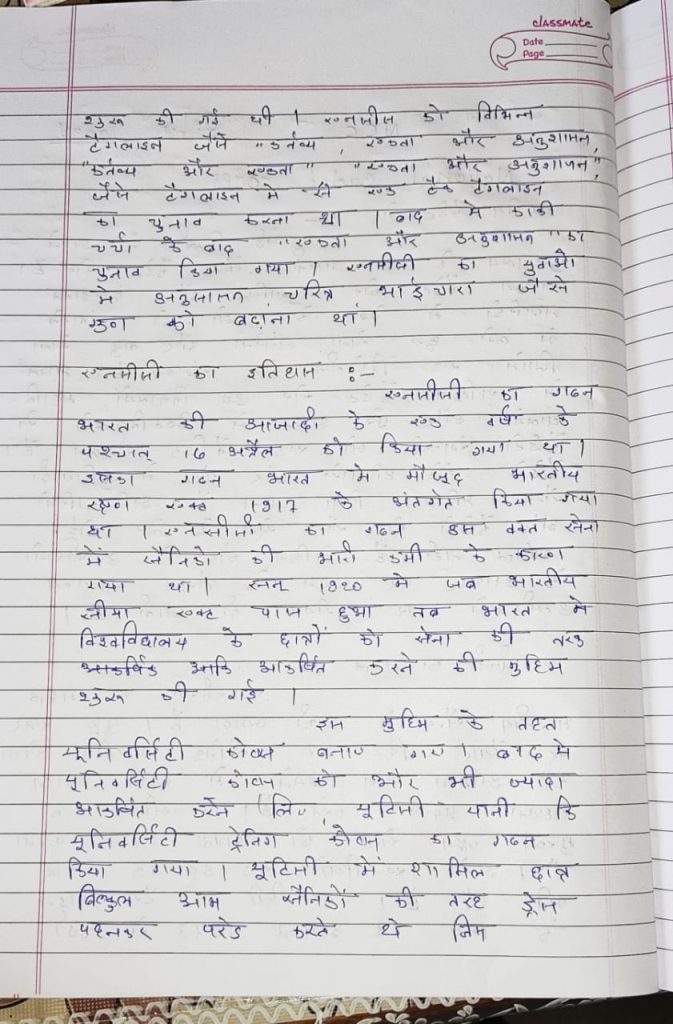 classmate
Date
Page
शुरू की गई थी । एनसीसी को विभिन्न
टैगलाइन जैसे "कर्तव्य, एकता और अनुशासन,
"कर्तव्य और एकता" "एकता और अनुशासन,"
जैसे टैगलाइन मे से एक टैक टैगलाइन
का चुनाव करना था । बाद मे काफी
चर्चा के बाद "एकता और अनुशासन" का
चुनाव किया गया । एनसीसी का युवाओ
मे अनुसासन चरित्र भाईचारा जैसे
गुण को बढ़ांना था ।
एनसीसी का इतिहास :-
एनसीसी का गठन
भारत की आजादी के एक वर्ष के
पश्चात् 16 अप्रैल को किया गया था ।
इसका गठन भारत मे मौजूद भारतीय
रक्षा एक्ट 1917 के अंतर्गत किया गया
था । एनसीसी का गठन उस वक्त सेना
में सैनिको की भारी कमी के कारण
गया था । सन् 1920 मे जब भारतीय
सीमा एक्ट पास हुआ तब भारत मे
विश्वविद्यालय के छात्रों को सेना की तरफ
आकर्षित करने की मुहिम
शुरू की गई ।
इस मुहिम के तहत
यूनिवर्सिटी कोप्स बनाए गए । बाद मे
यूनिवर्सिटी कोप्स को और भी ज्यादा
आकर्षित करेन लिए यूटिसी यानी कि
यूनिवर्सिटी ट्रेनिग कोप्स का गठन
किया गया । यूटिसी में शामिल छात्र
बिल्कुल आम सैनिकों की तरह ड्रेस
पहनकर परेड करते थे जिस